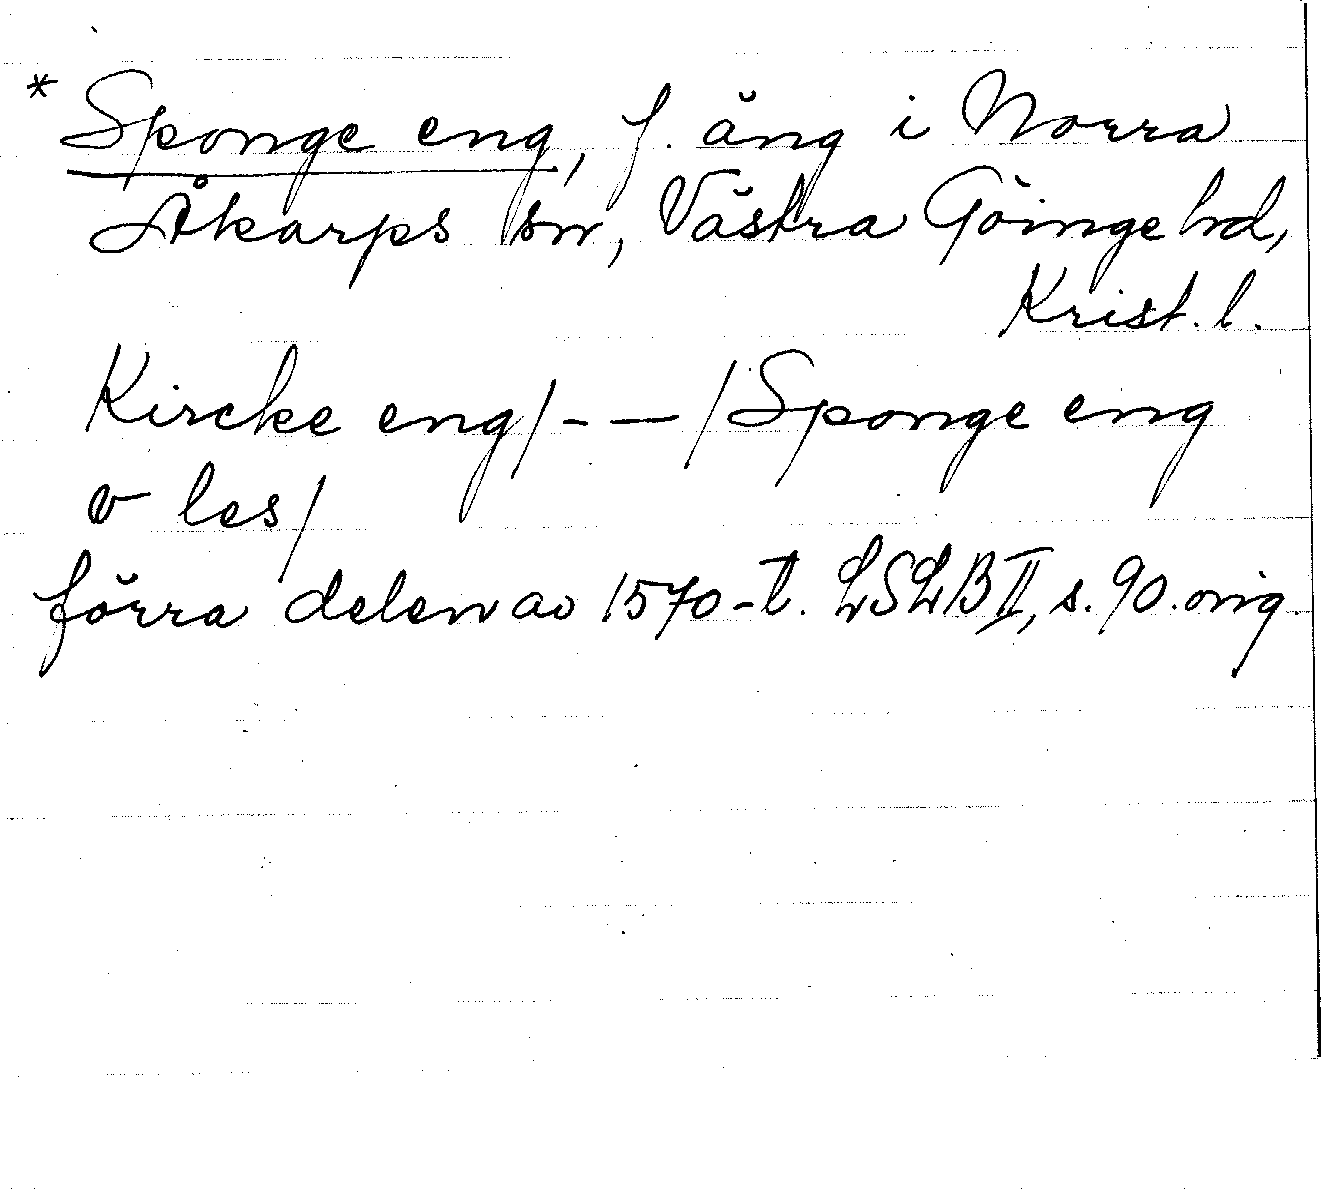 * Sponge eng, f. äng i Norra
Åkarps sn, Västra Göinge hd,
Krist. l.
Kircke eng/- — /Sponge eng
v les/
förra delen av 1570-t. LSLB II, s. 90. orig